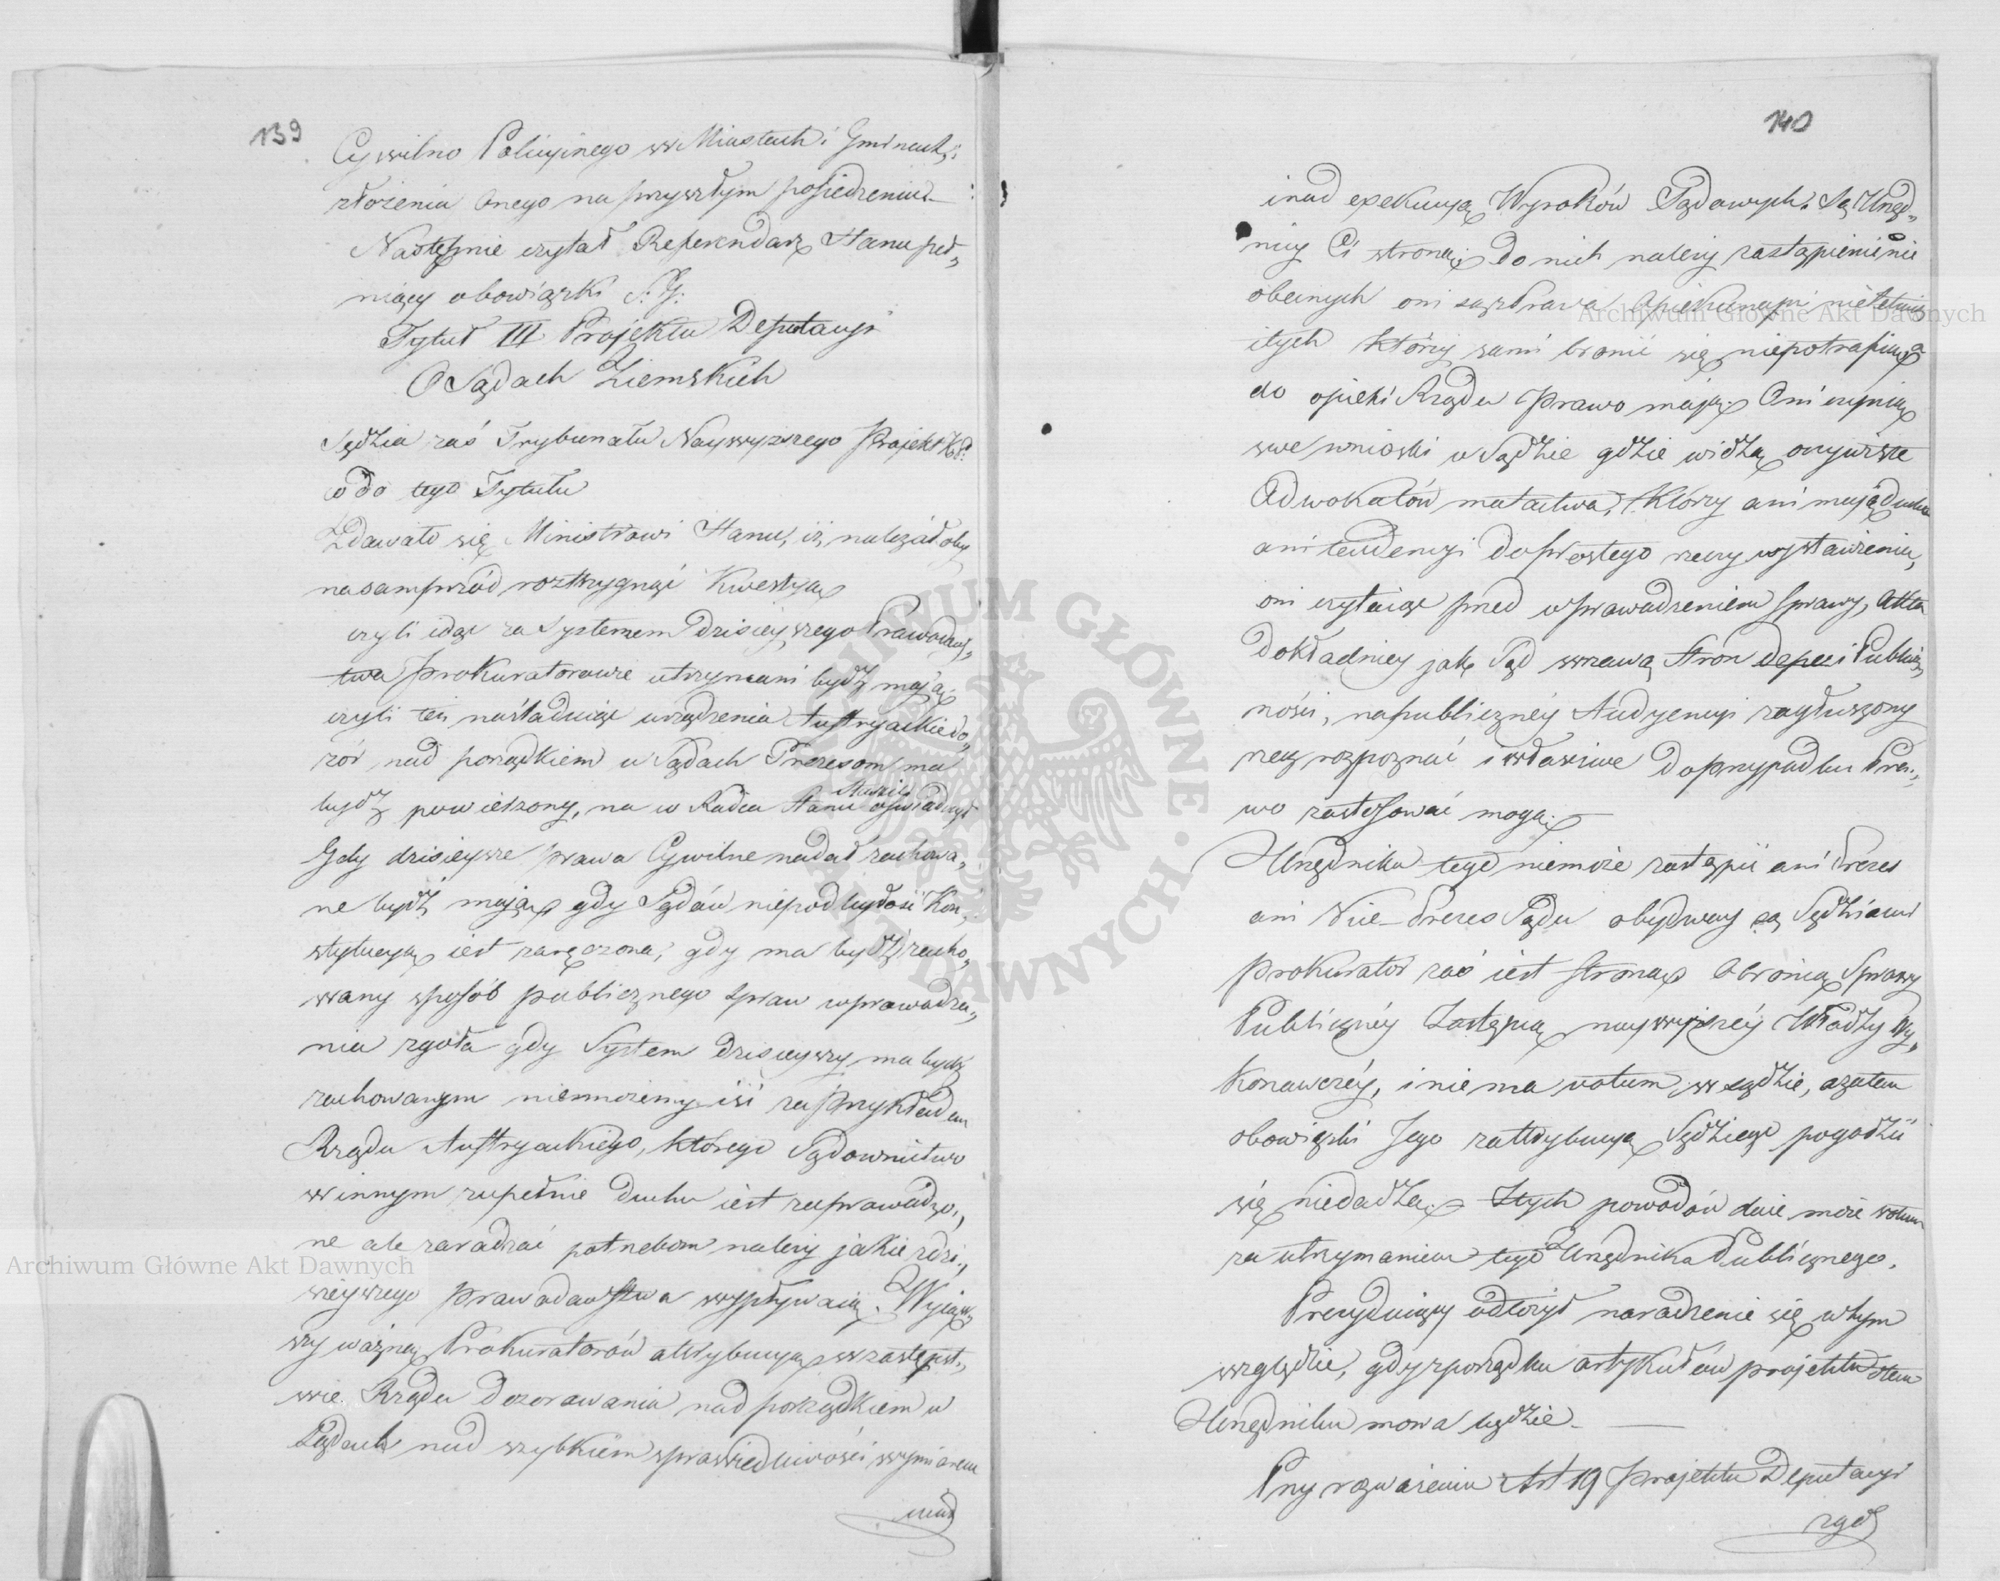 139
Cywilno Policyinego w Miastach i Gminach, i
złożenia onego na przyszłym posiedzeniu
Następnie czytał Referendarz Stanu peł„
niący obowiązki S: G:
Tytuł III Projektu Deputacyi
O Sądach Ziemskich
Sędzia zaś Trybunału Naywyższego Projekt
co do tego Tytułu
Zdawało się Ministrowi Stanu, iż należałoby
nasamprzód roztrzygnąć Kwestyą
czyli idąc za Systemem dzisieyszego Prawodaws„
twa Prokuratorowie utrzymani bydź mają
czyli też naśladując urządzenia Austryackie do„
zór nad porządkiem w Sądach Prezesom ma
bydź powierzony, na co Radca Stanu oświadczył
Gdy dzisieysze prawa Cywilne nadal zachowa„
ne bydź mają, gdy Sądów niepodległość Kon„
stytucyą iest zaręczona, gdy ma bydź zacho„
wany sposób publicznego spraw wprowadza„
nia zgoła gdy System dzisieyszy ma bydź
zachowanym niemożemy iść za przykładem
Rządu Austryackiego, którego Sądownictwo
w innym zupełnie duchu iest zaprowadzo„
ne ale zaradzać potrzebom należy jakie z dzi„
sieyszego prawodawstwa wypływaią. Wyiąw„
szy ważną Prokuratorów attrybucyą w zastępst„
wie Rządu dozorowania nad porządkiem w
Sądach nad szybkiem sprawiedliwości wymiarem
nad
140
i nad exekucyą Wyroków Sądowych. Są Urzęd„
nicy Ci stroną; do nich należy zastąpienie nie
obecnych oni są z prawa Opiekunami nieletnich
i tych którzy sami bronić się niepotrafią a
do opieki Rządu prawo mają. Oni czynią
swe wnioski w Sądzie gdzie widzą oczywiste
Adwokatów matactwa, którzy ani mają ducha
ani tendencyi do prostego rzeczy wystawienia,
oni czytaiąc przed wprowadzeniem sprawy, Akta
dokładniey jak Sąd wrzawą Stron i Publicz„
ności, na publiczney Audyencyi zagłuszony
rzecz rozpoznać i właściwe do przypadku Pra„
wo zastosować mogą.
Urzędnika tego niemoże zastąpić ani Prezes
ani Vice-Prezes Sądu obydway są Sędziami
Prokurator zaś iest stroną Obrońcą Sprawy
Publiczney Zastępcą naywyższey Władzy Wy„
konawczey, i nie ma votum w sądzie, a zatem
obowiązki Jego z attrybucyą Sędziego pogodzić
się niedadzą. Z tych powodów daie moie votum
za utrzymaniem tego Urzędnika Publicznego.
Prezyduiący odłożył naradzenie się w tym
względzie, gdy z porządku artykułów projektu o tem
Urzędniku mowa będzie.
Przy rozważeniu Art 19 Projektu Deputacyi
zgod
Archiwum Główne Akt Dawnych
Archiwum Główne Akt Dawnych
ARCHIWUM GŁÓWNE AKT DAWNYCH